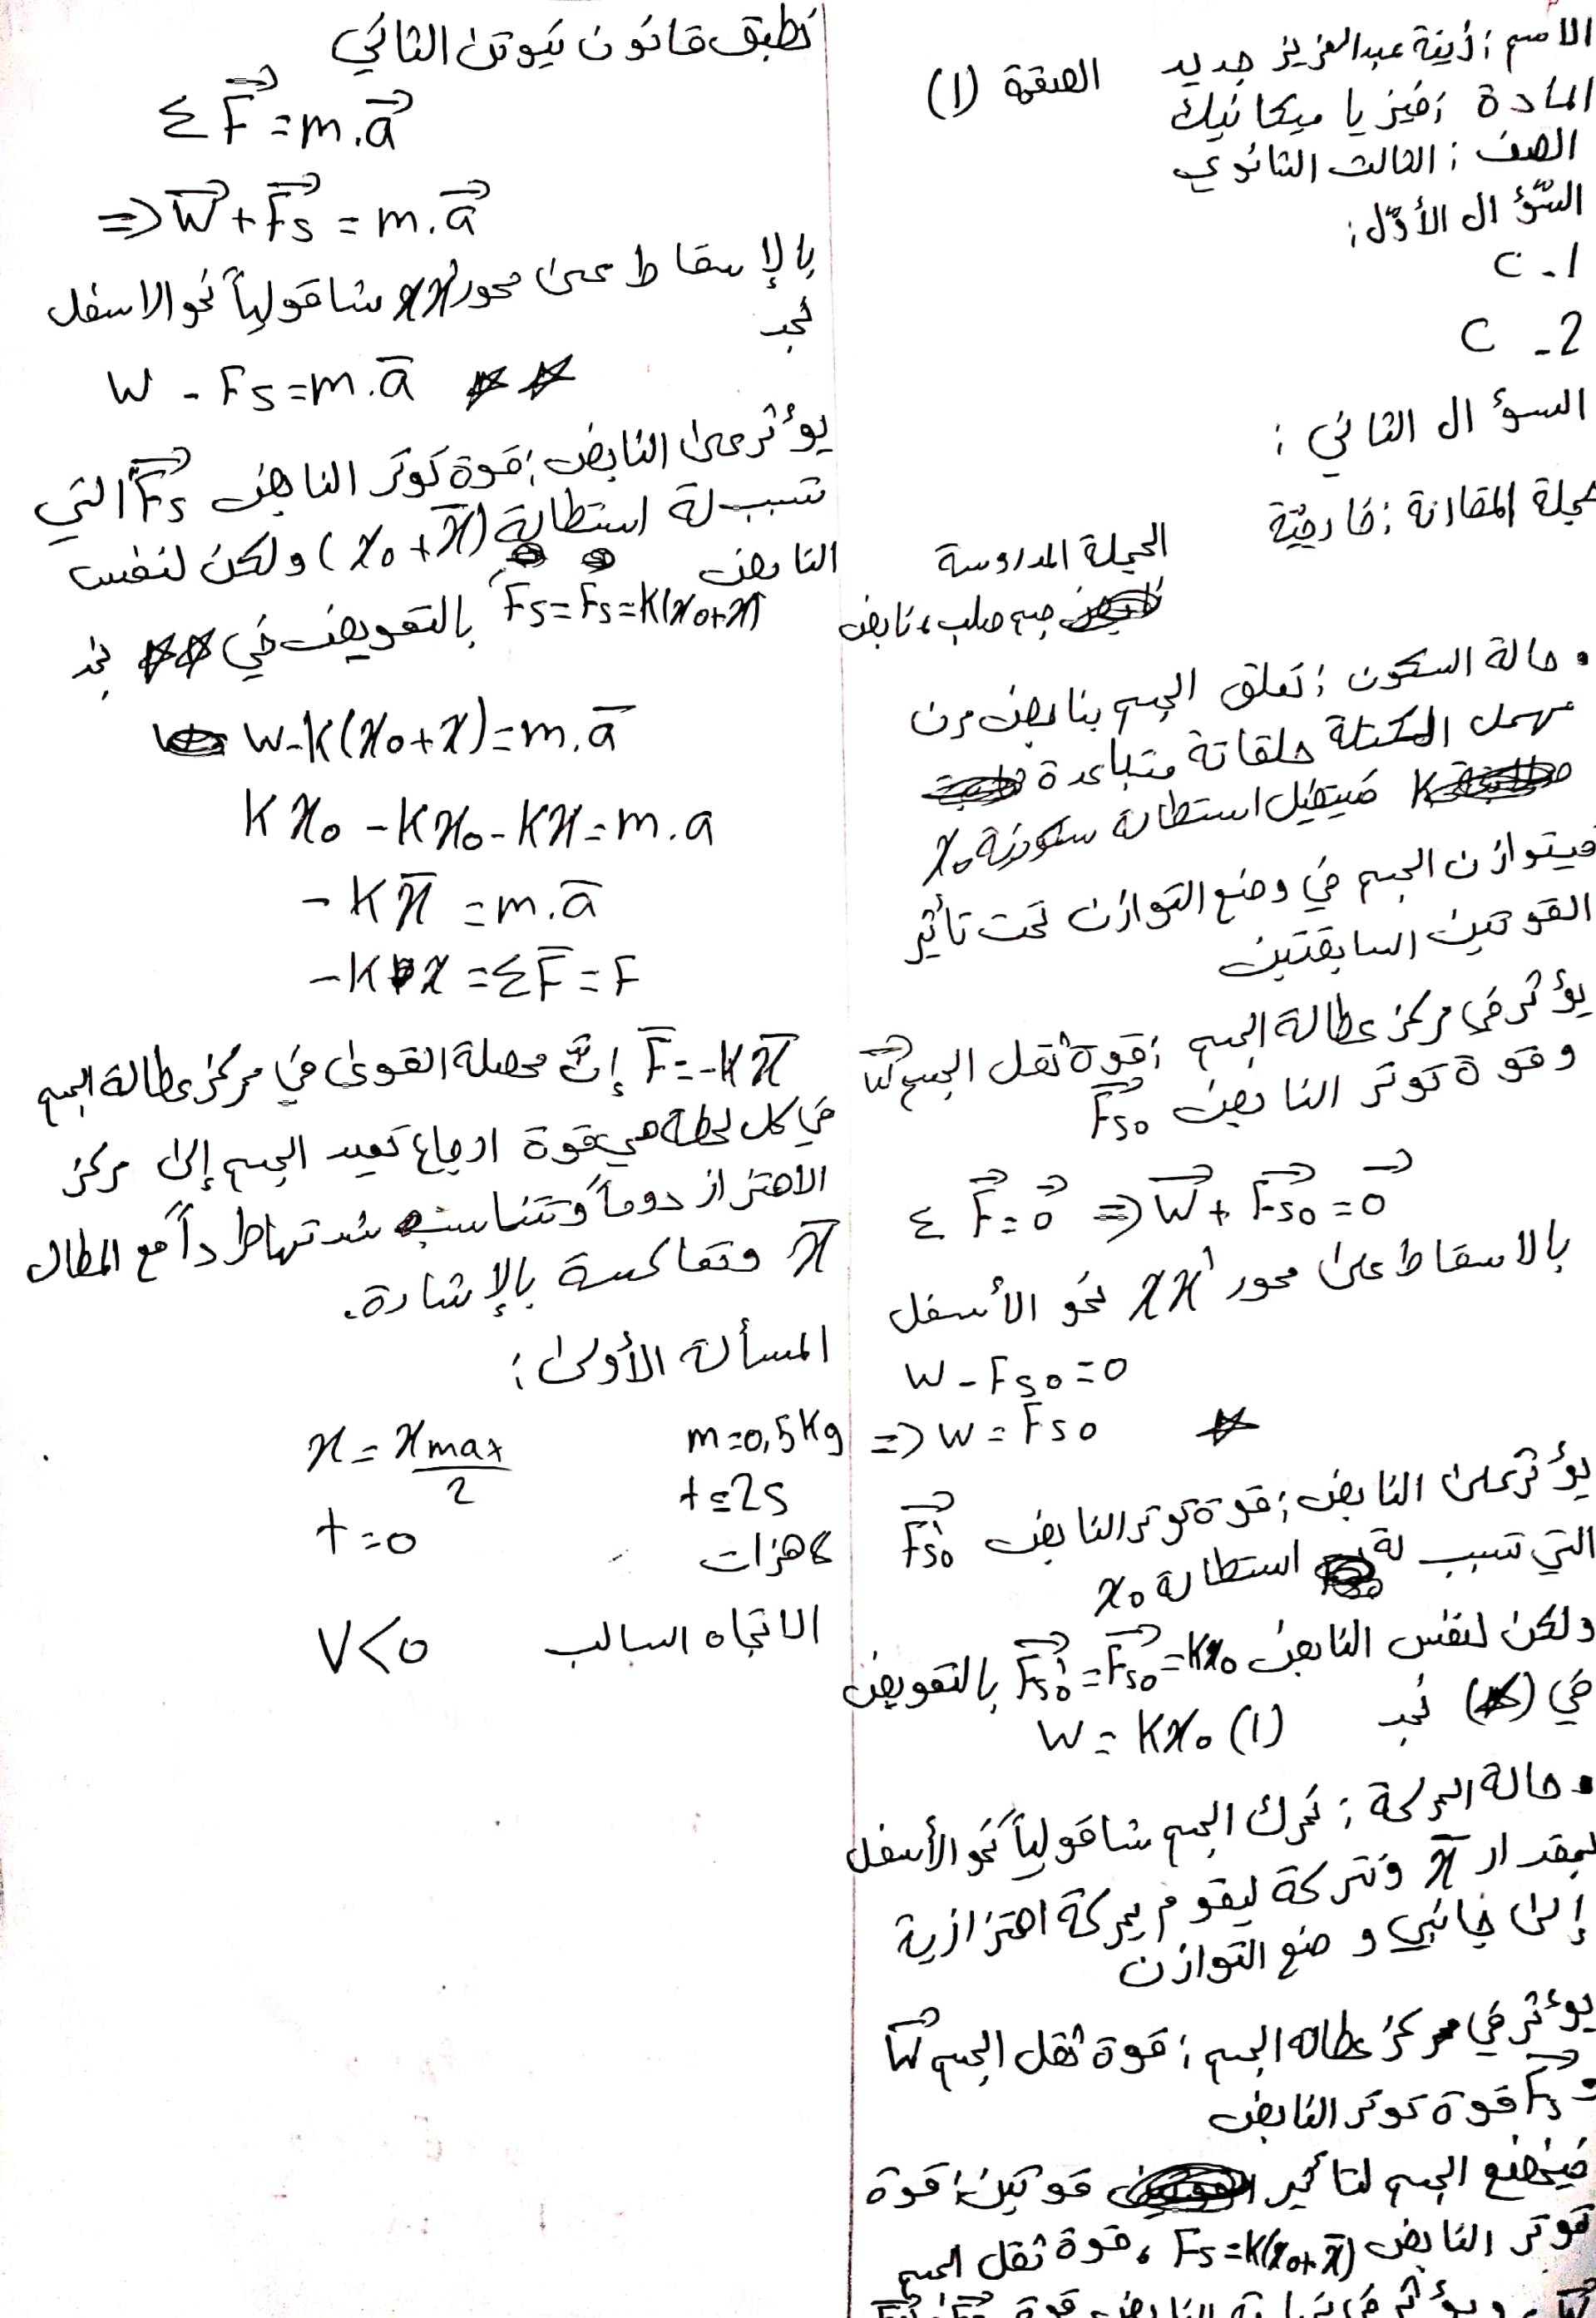 الاسم : زينة عبدالعزيز جديد
الصفحة (1)
المادة : فيزيا ميكانيك
الصف : الثالث الثانوي
السّؤال الأوّل :
1- C
2- C
السؤال الثاني :
جملة المقارنة : خارجيّة
الجملة المدروسة
جسم صلب، نابض
• حالة السكون : نعلق الجسم بنابض مرن
مهمل الكتلة حلقاتة متباعدة
فيتطيل استطالة سكونية x₀
فيتوازن الجسم في وضع التوازن تحت تأثير
القوتين السابقتين
يؤثر في مركز عطالة الجسم : قوة ثقل الجسم W⃗
وقوة توتر النابض F⃗s₀
Σ F⃗ = 0⃗ ⇒ W⃗ + F⃗s₀ = 0⃗
بالاسقاط على محور xx' نحو الأسفل
W - Fs₀ = 0
⇒ W = Fs₀ *
يؤثر على النابض : قوة توتر النابض F⃗s₀'
التي تسبب لة استطالة x₀
ولكن لنفس النابض F⃗s₀' = F⃗s₀ = Kx₀ بالتعويض
في (*) نجد
W = Kx₀ (1)
• حالة الحركة : نحرك الجسم شاقولياً نحو الأسفل
بمقدار x̄ ونتركة ليقوم بحركة اهتزازية
إلى جانبي وضع التوازن
يؤثر في مركز عطالة الجسم : قوة ثقل الجسم W⃗
و F⃗s قوة توتر النابض
فيخضع الجسم لتأثير قوتين : قوة
توتر النابض Fs = K(x₀ + x̄) ، قوة ثقل الجسم
نطبق قانون نيوتن الثاني
Σ F⃗ = m . a⃗
⇒ W⃗ + F⃗s = m . a⃗
بالإسقاط على محور xx' شاقولياً نحو الاسفل
نجد
W - Fs = m . ā **
يؤثر على النابض : قوة توتر النابض F⃗s' التي
تسبب لة استطالة (x₀ + x̄) ولكن لنفس
النابض
Fs' = Fs = K(x₀ + x) بالتعويض في ** نجد
W - K(x₀ + x) = m . ā
K x₀ - K x₀ - K x = m . a
- K x̄ = m . ā
- K x = Σ F̄ = F
F̄ = - K x̄ إنّ محصلة القوى في مركز عطالة الجسم
في كل لحظة هي قوة ارجاع تعيد الجسم إلى مركز
الاهتزاز دوماً وتتناسب شدتها طرداً مع المطال
x̄ وتعاكسة بالإشارة .
المسألة الأولى :
m = 0,5 Kg x = xmax/2
t = 2s
t = 0
هزات
الاتجاه السالب V < 0